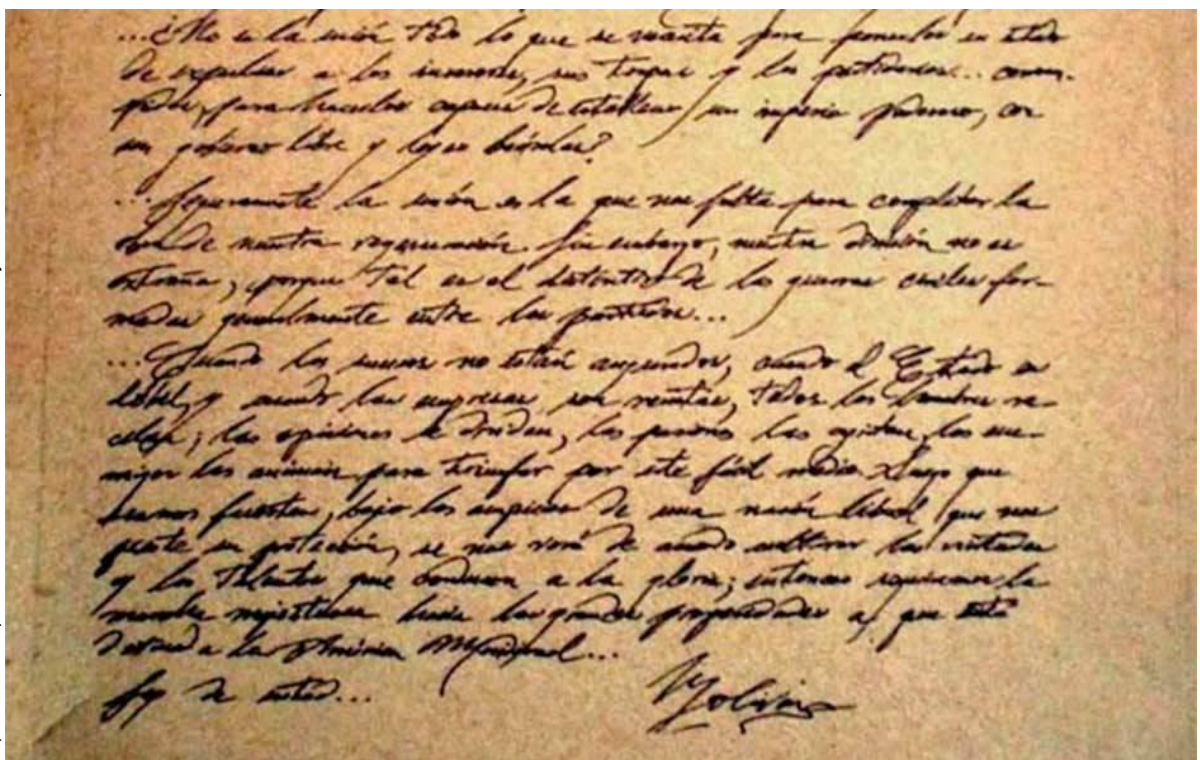 ...¿No es la unión todo lo que se necesita para ponerlos en estado
de expulsar a los sus tropas y los partidarios... corrom-
pidos, para hacerlos capaces de establecer un imperio poderoso, con
un gobierno libre y leyes benévolas?
...Seguramente la unión es la que nos falta para completar la
obra de nuestra regeneración. Sin embargo, nuestra división no es
extraña, porque tal es el distintivo de las guerras civiles for-
madas generalmente entre los partidos...
...Cuando los sucesos no están asegurados, cuando el Estado es
débil, y cuando las empresas son remotas, todos los hombres
las opiniones se dividen, las pasiones las agitan, los ene-
migos las animan para triunfar por este fácil medio. Luego que
seamos fuertes, bajo los auspicios de una nación liberal que nos
preste su protección, se nos verá de acuerdo cultivar las virtudes
y los talentos que conducen a la gloria; entonces seguiremos la
marcha majestuosa hacia las grandes prosperidades a que está
destinada la América Meridional...
Soy de usted... Bolívar